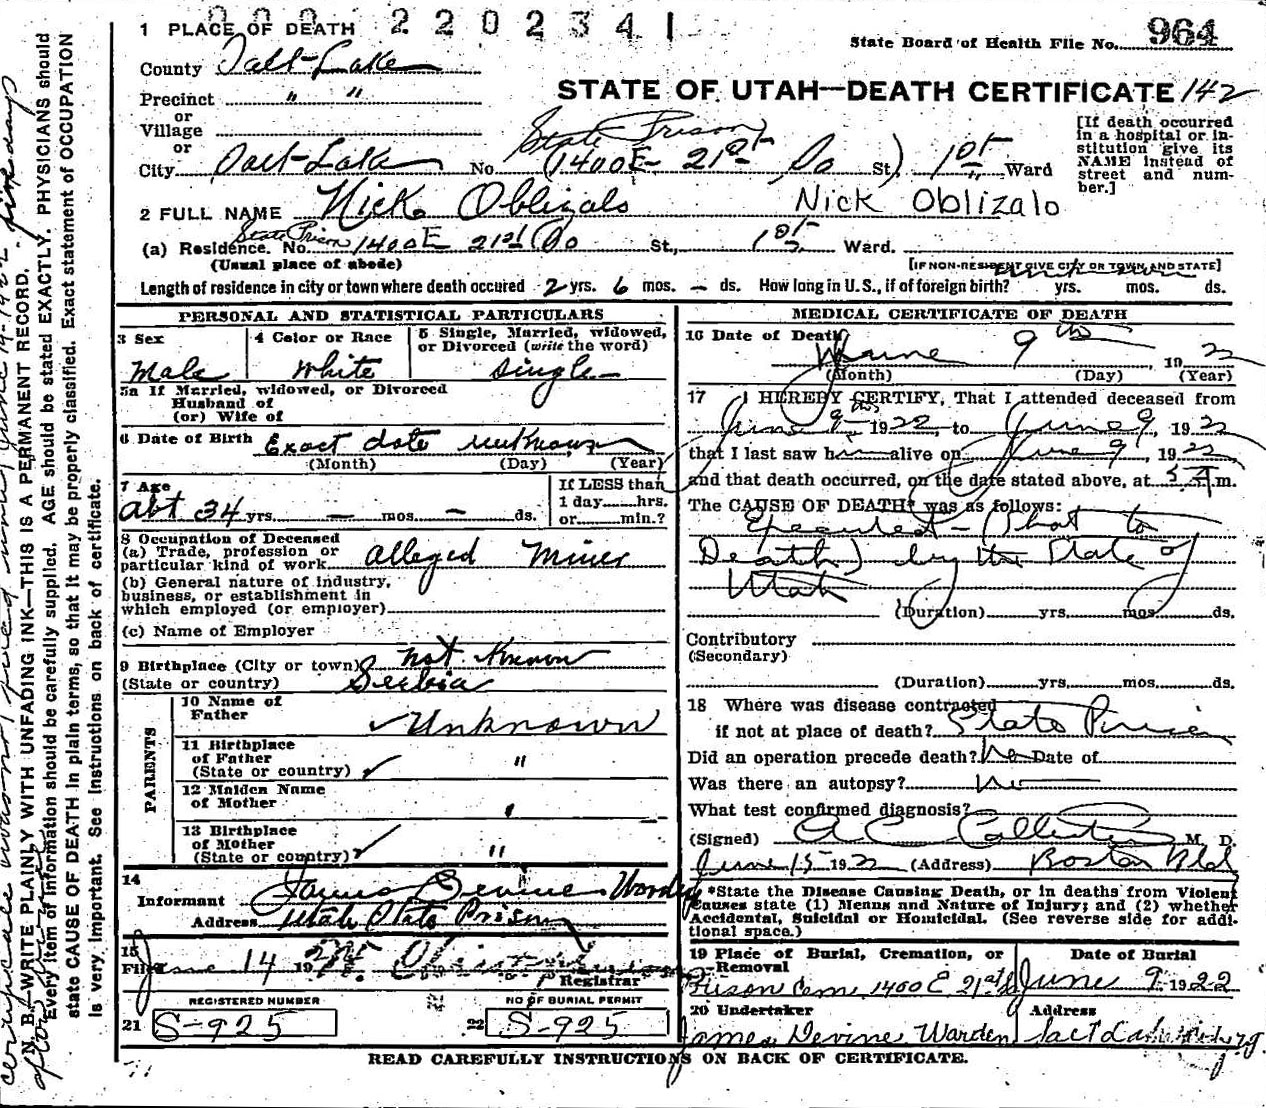 000 2202341
1 PLACE OF DEATH
State Board of Health File No. 964
County Salt Lake
Precinct " "
STATE OF UTAH—DEATH CERTIFICATE 142
or
Village
or
State Prison
City Salt Lake No (1400 E 21st So St) 1st Ward
[If death occurred
in a hospital or in-
stitution give its
NAME instead of
street and num-
ber.]
2 FULL NAME Nick Oblizalo Nick Oblizalo
(a) Residence. No. State Prison 1400 E 21st So St., 1st Ward.
(Usual place of abode)
[IF NON-RESIDENT GIVE CITY OR TOWN AND STATE]
Length of residence in city or town where death occured 2 yrs. 6 mos. – ds. How long in U.S., if of foreign birth? yrs. mos. ds.
PERSONAL AND STATISTICAL PARTICULARS
3 Sex
Male
4 Color or Race
White
5 Single, Married, widowed,
or Divorced (write the word)
Single
5a If Married, widowed, or Divorced
Husband of
(or) Wife of
6 Date of Birth Exact date unknown
(Month) (Day) (Year)
7 Age
abt 34 yrs. – mos. – ds.
If LESS than
1 day hrs.
or min.?
8 Occupation of Deceased
(a) Trade, profession or
particular kind of work alleged Miner
(b) General nature of industry,
business, or establishment in
which employed (or employer)
(c) Name of Employer
9 Birthplace (City or town) not Known
(State or country) Serbia
PARENTS
10 Name of
Father Unknown
11 Birthplace
of Father
(State or country) ✓ "
12 Maiden Name
of Mother "
13 Birthplace
of Mother
(State or country) ✓ "
14
Informant James Devine Warden
Address Utah State Prison
15
Filed June 14 19
Registrar
REGISTERED NUMBER
21 S-925
NO OF BURIAL PERMIT
22 S-925
MEDICAL CERTIFICATE OF DEATH
16 Date of Death
June 9th, 1922
(Month) (Day) (Year)
17 I HEREBY CERTIFY, That I attended deceased from
June 9th 1922, to June 9, 1922
that I last saw him alive on June 9, 1922
and that death occurred, on the date stated above, at 5 A. m.
The CAUSE OF DEATH* was as follows:
Executed – (Shot to
Death) by the State of
Utah
(Duration) yrs. mos. ds.
Contributory
(Secondary)
(Duration) yrs. mos. ds.
18 Where was disease contracted
if not at place of death? State Prison
Did an operation precede death? No Date of
Was there an autopsy? No
What test confirmed diagnosis?
(Signed) A C M. D.
June 15 1922 (Address) Boston Bld
*State the Disease Causing Death, or in deaths from Violent
Causes state (1) Means and Nature of Injury; and (2) whether
Accidental, Suicidal or Homicidal. (See reverse side for addi-
tional space.)
19 Place of Burial, Cremation, or
Removal
Prison Cem 1400 E 21st So
Date of Burial
June 9 1922
20 Undertaker
James Devine Warden
Address
Salt Lake
READ CAREFULLY INSTRUCTIONS ON BACK OF CERTIFICATE.
N. B.—WRITE PLAINLY WITH UNFADING INK—THIS IS A PERMANENT RECORD.
Every item of information should be carefully supplied. AGE should be stated EXACTLY. PHYSICIANS should
state CAUSE OF DEATH in plain terms, so that it may be properly classified. Exact statement of OCCUPATION
is very important. See instructions on back of certificate.